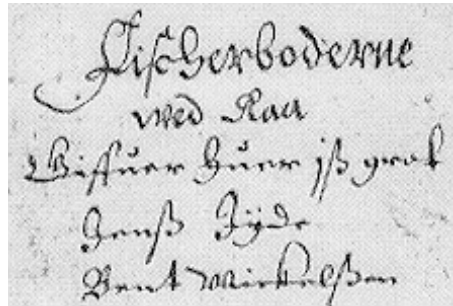 Fischerboderne
wed Raa
Giffuer huer iß grot
Jenß Jÿde
Bent Mickelßen